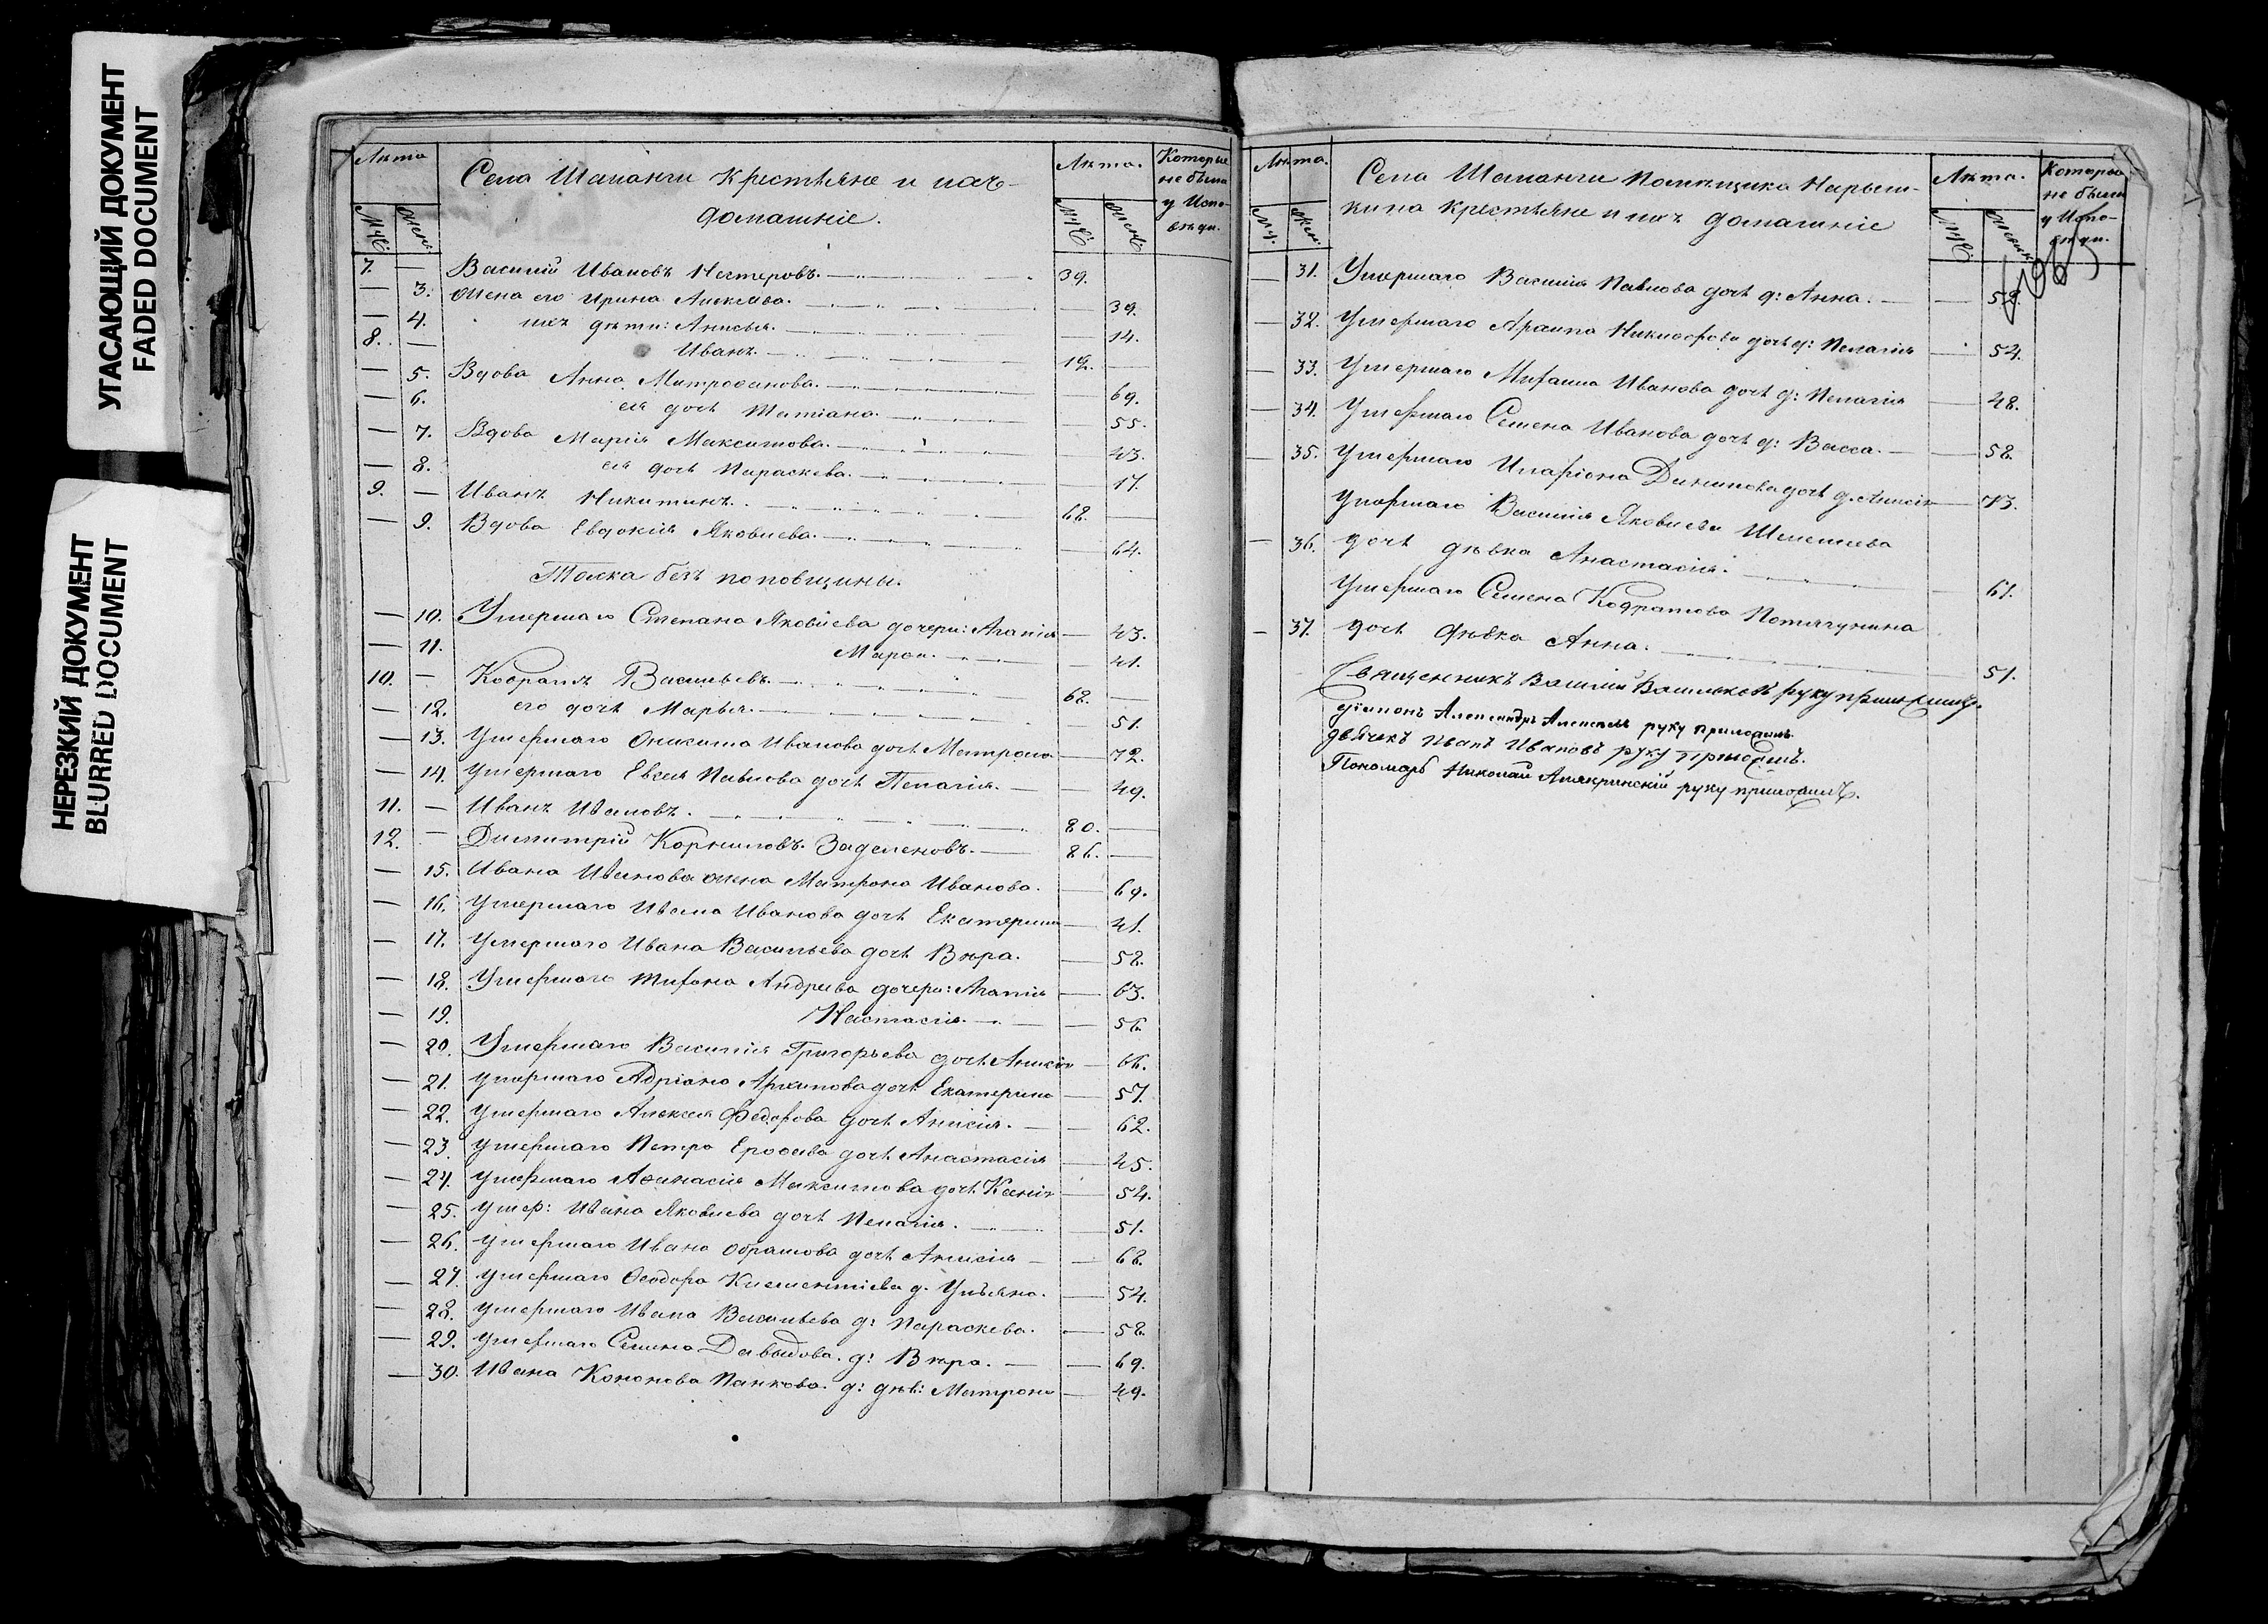 УГАСАЮЩИЙ ДОКУМЕНТ
FADED DOCUMENT
НЕРЕЗКИЙ ДОКУМЕНТ
BLURRED DOCUMENT
Лѣта
Села Шаманги Крестьяне и ихъ
домашніе.
Лѣта.
Которые
не были
у Испо-
вѣди.
7. — Василій Ивановъ Нестеровъ. 39.
— 3. Жена его Ирина Алексѣева. — 39.
— 4. ихъ дѣти: Анисья. — 14.
8. — Иванъ. 19. —
— 5. Вдова Анна Митрофанова. — 69.
— 6. ея дочь Татіана. — 55.
— 7. Вдова Марія Максимова. — 43.
— 8. ея дочь Параскева. — 17.
9. — Иванъ Никитинъ. 68. —
— 9. Вдова Евдокія Яковлева. — 64.
Толка безъ поповщины.
— 10. Умершаго Степана Яковлева дочери: Агапія — 43.
— 11. Марѳа. — 41.
10. — Кодратъ Васильевъ. 68. —
— 12. его дочь Марья. — 51.
— 13. Умершаго Онисима Иванова дочь Матрона — 72.
— 14. Умершаго Евсея Павлова дочь Пелагія. — 49.
11. — Иванъ Ивановъ. 80. —
12. — Димитрій Корниловъ 86. —
— 15. Ивана Иванова жена Матрона Иванова. — 69.
— 16. Умершаго Ивана Иванова дочь Екатерина — 41.
— 17. Умершаго Ивана Васильева дочь Вѣра. — 58.
— 18. Умершаго Тихона Андреева дочери: Агапія — 63.
— 19. Настасія. — 56.
— 20. Умершаго Василія Григорьева дочь Анисія — 66.
— 21. Умершаго Адріана Архипова дочь Екатерина — 57.
— 22. Умершаго Алексея Федорова дочь Анисія. — 62.
— 23. Умершаго Петра Ерофеева дочь Анастасія — 45.
— 24. Умершаго Афанасія Максимова дочь — 54.
— 25. Умер: Ивана Яковлева дочь Пелагія. — 51.
— 26. Умершаго Ивана Абрамова дочь Анисія — 68.
— 27. Умершаго Ѳеодора Клементіева д. Ульяна. — 54.
— 28. Умершаго Ивана Васильева д: Параскева. — 58.
— 29. Умершаго Семена Давыдова. д: Вѣра. — 69.
— 30. Ивана Кононова Панкова. д: дѣв: Матрона — 49.
Лѣта.
Села Шаманги помѣщика Нарыш-
кина крестьяне и ихъ домашніе
Лѣта.
Которые
не были
у Испо-
вѣди.
— 31. Умершаго Василія Павлова дочь д: Анна. — 52.
— 32. Умершаго Никифорова дочь д: Пелагія — 54.
— 33. Умершаго Михаила Иванова дочь д: Пелагія — 48.
— 34. Умершаго Семена Иванова дочь д: Васса. — 58.
— 35. Умершаго Иларіона Данилова дочь д. Анисія — 73.
Умершаго Василія Яковлева Шелешева
— 36. дочь дѣвка Анастасія. — 61.
Умершаго Семена Кодратова
— 37. дочь дѣвка Анна. 51.
Священникъ Василій Васильковъ руку приложилъ.
діаконъ Александръ руку приложилъ.
дьячекъ Иванъ Ивановъ руку приложилъ.
Пономарь Николай руку приложилъ.